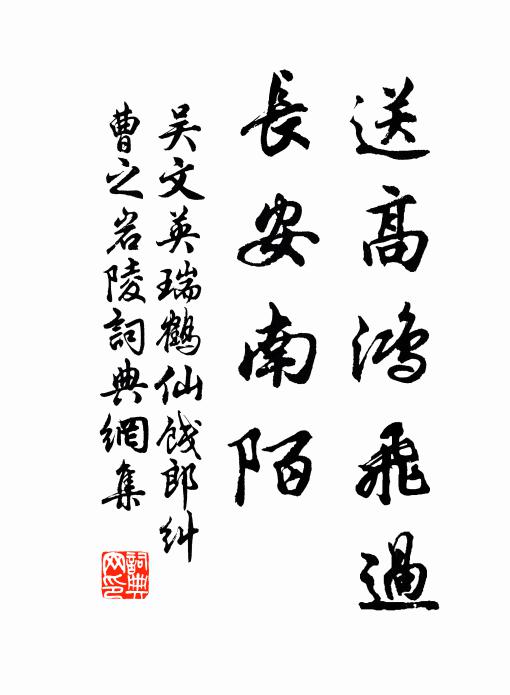 送高鴻飛過
長安南陌
吳文英瑞鶴仙餞郎糾
曹之岩陵詞典網集
詞典網印